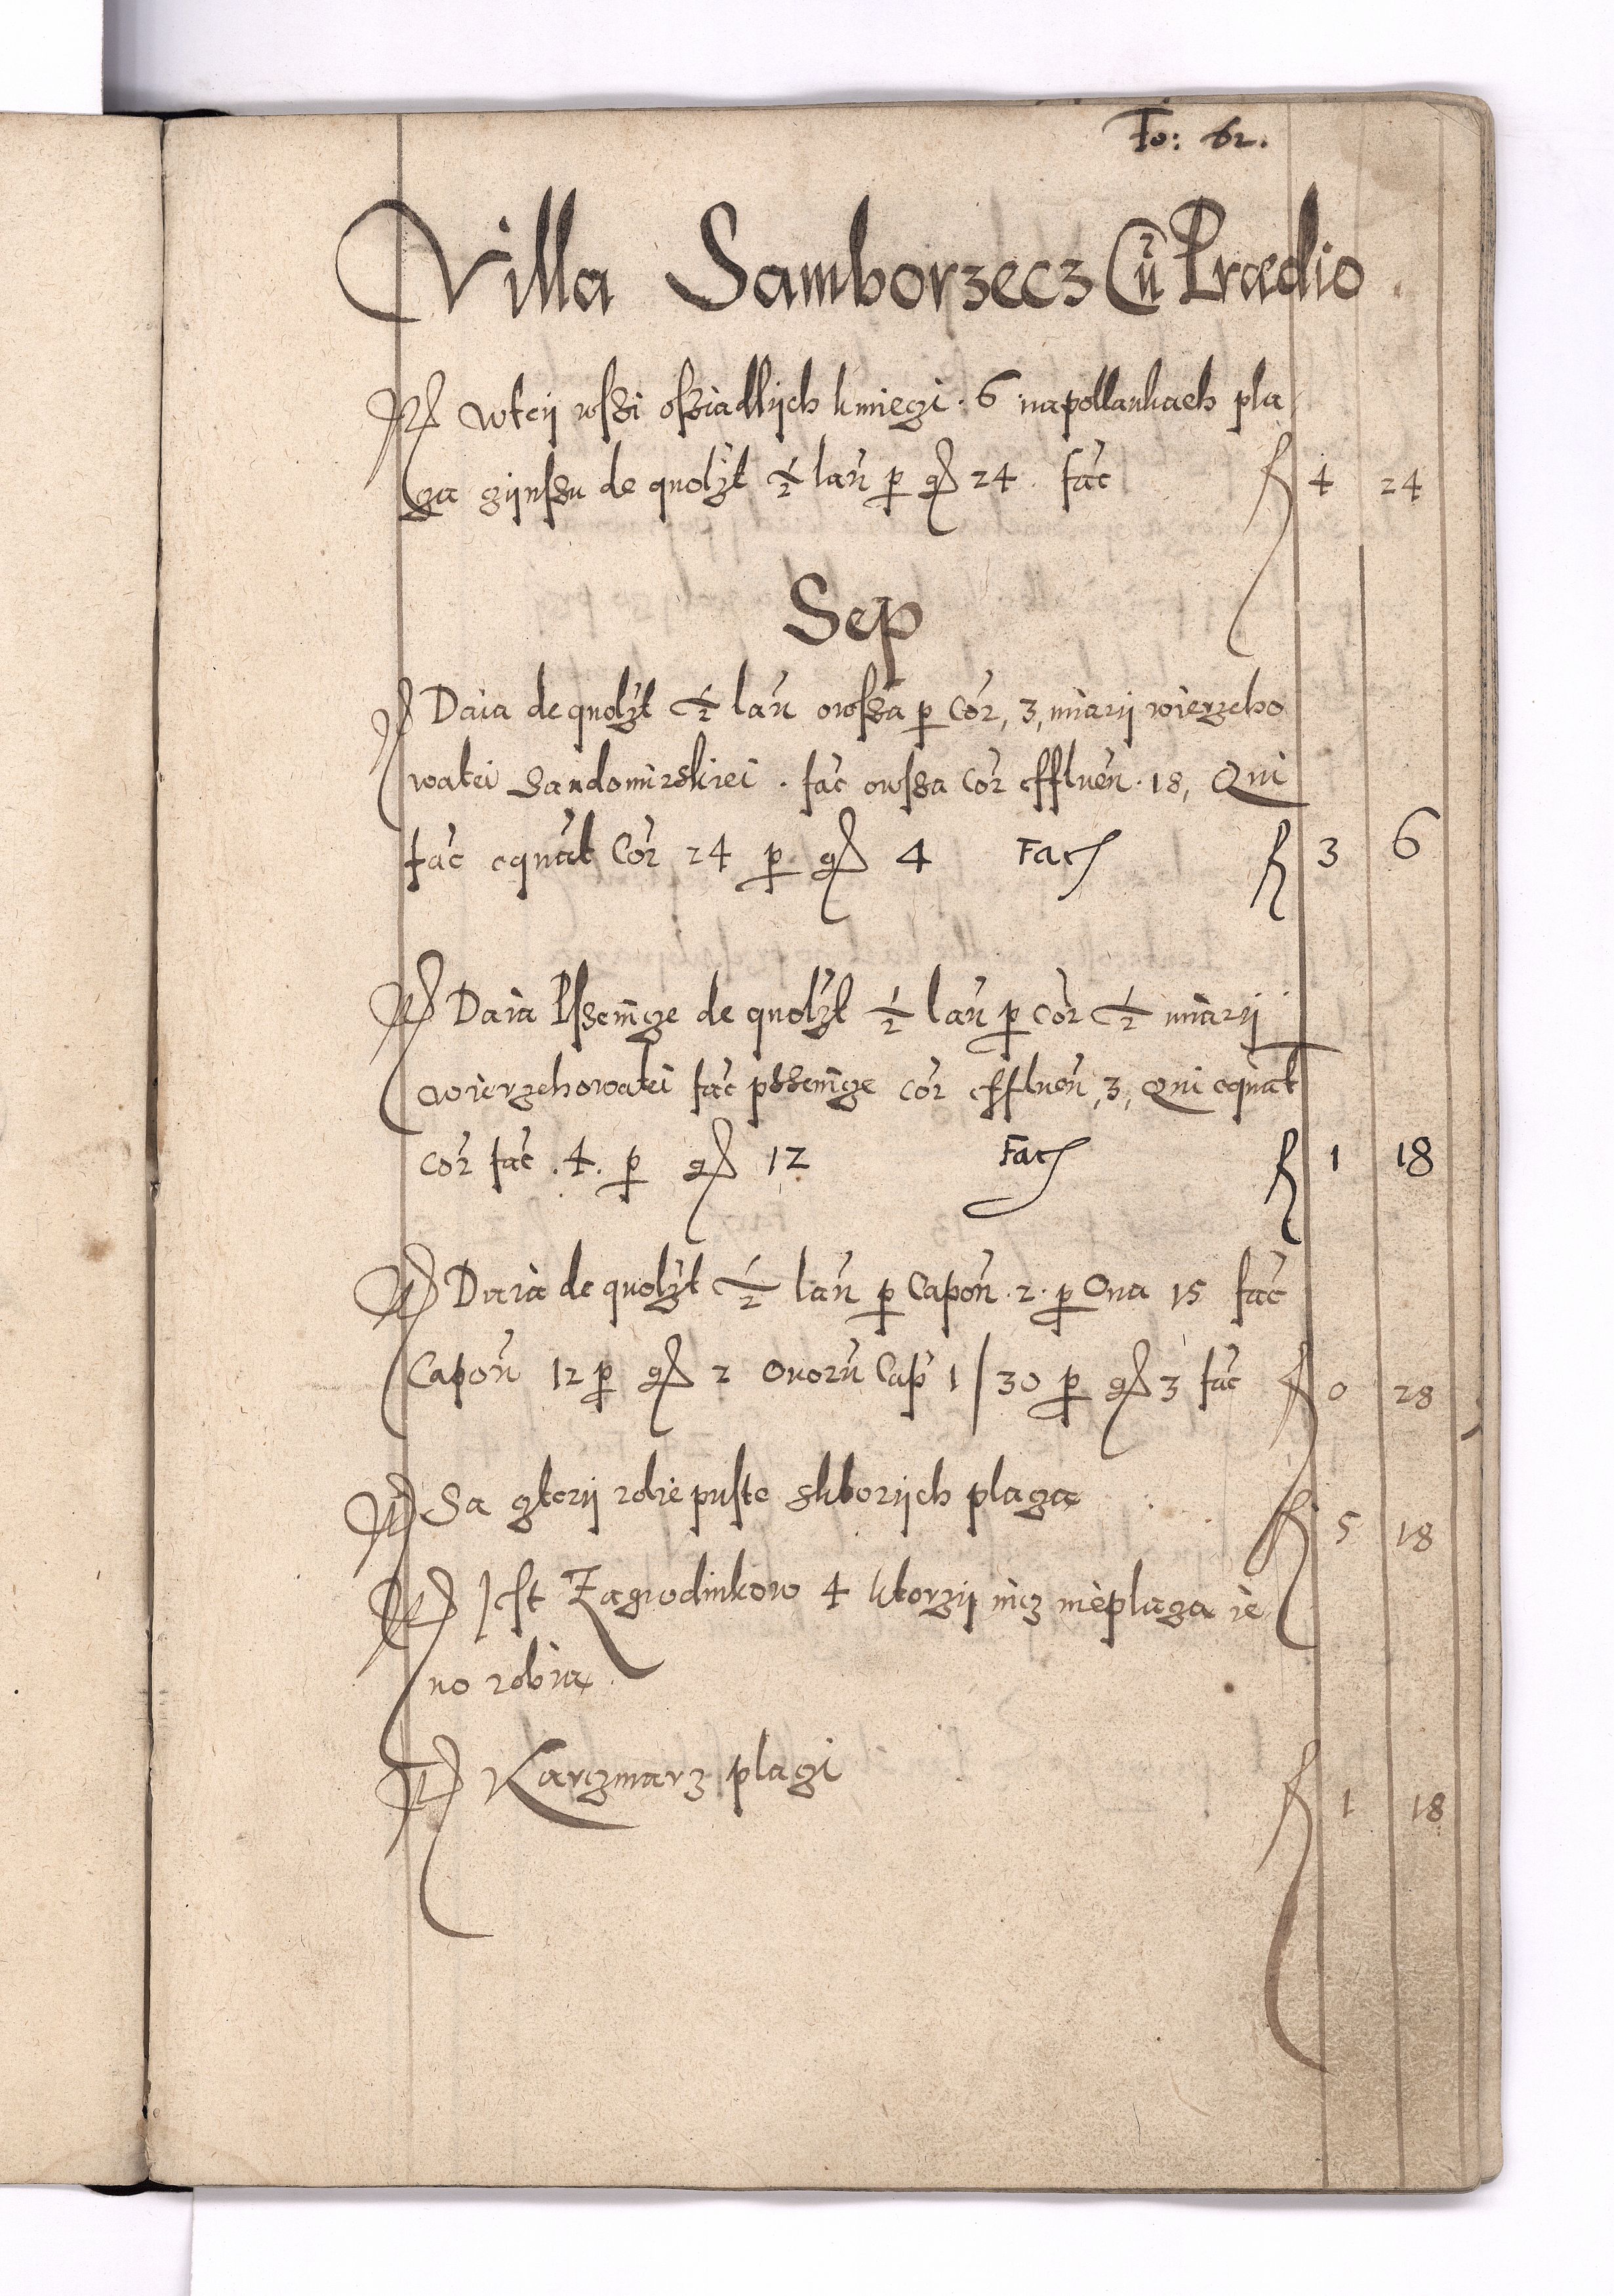 Fo: 62.
Villa Samborzecz Cū Prædio
Wteÿ wsszi ossiadlÿch kmieczi · 6 napollankach pla
cza czÿnssu de quolzt ½ lan̄ p gr 24 fac̄ f 4 24
Sep
Daia de quolzt ½ lan̄ owssa p Cor̄, 3, miarÿ wierzcho
watei Sandomirskiei · fac̄ owssa Cor̄ effluen̄ · 18, Qui
fac̄ equāt Cor̄ 24 p gr 4 Fac f 3 6
Daia Pssenicze de quolzt ½ lan̄ p Cor̄ ½ miarÿ
wierzchowatei fac̄ pssenicze cor̄ effluen̄, 3, Qui equāt
cor̄ fac̄ . 4 . p gr 12 Fac f 1 18
Daia de quolzt ½ lan̄ p Capon̄ · 2 · p Oua 15 fac̄
Capon̄ 12 p gr 2 Ouorū Cap 1/30 p gr 3 fac̄ f 0 28
Sa czterÿ role puste skthorÿch placza f 5 18
Jest Zagrodnikow 4 ktorzÿ nicz nieplacza ie
no robia
Karczmarz placzi f 1 18